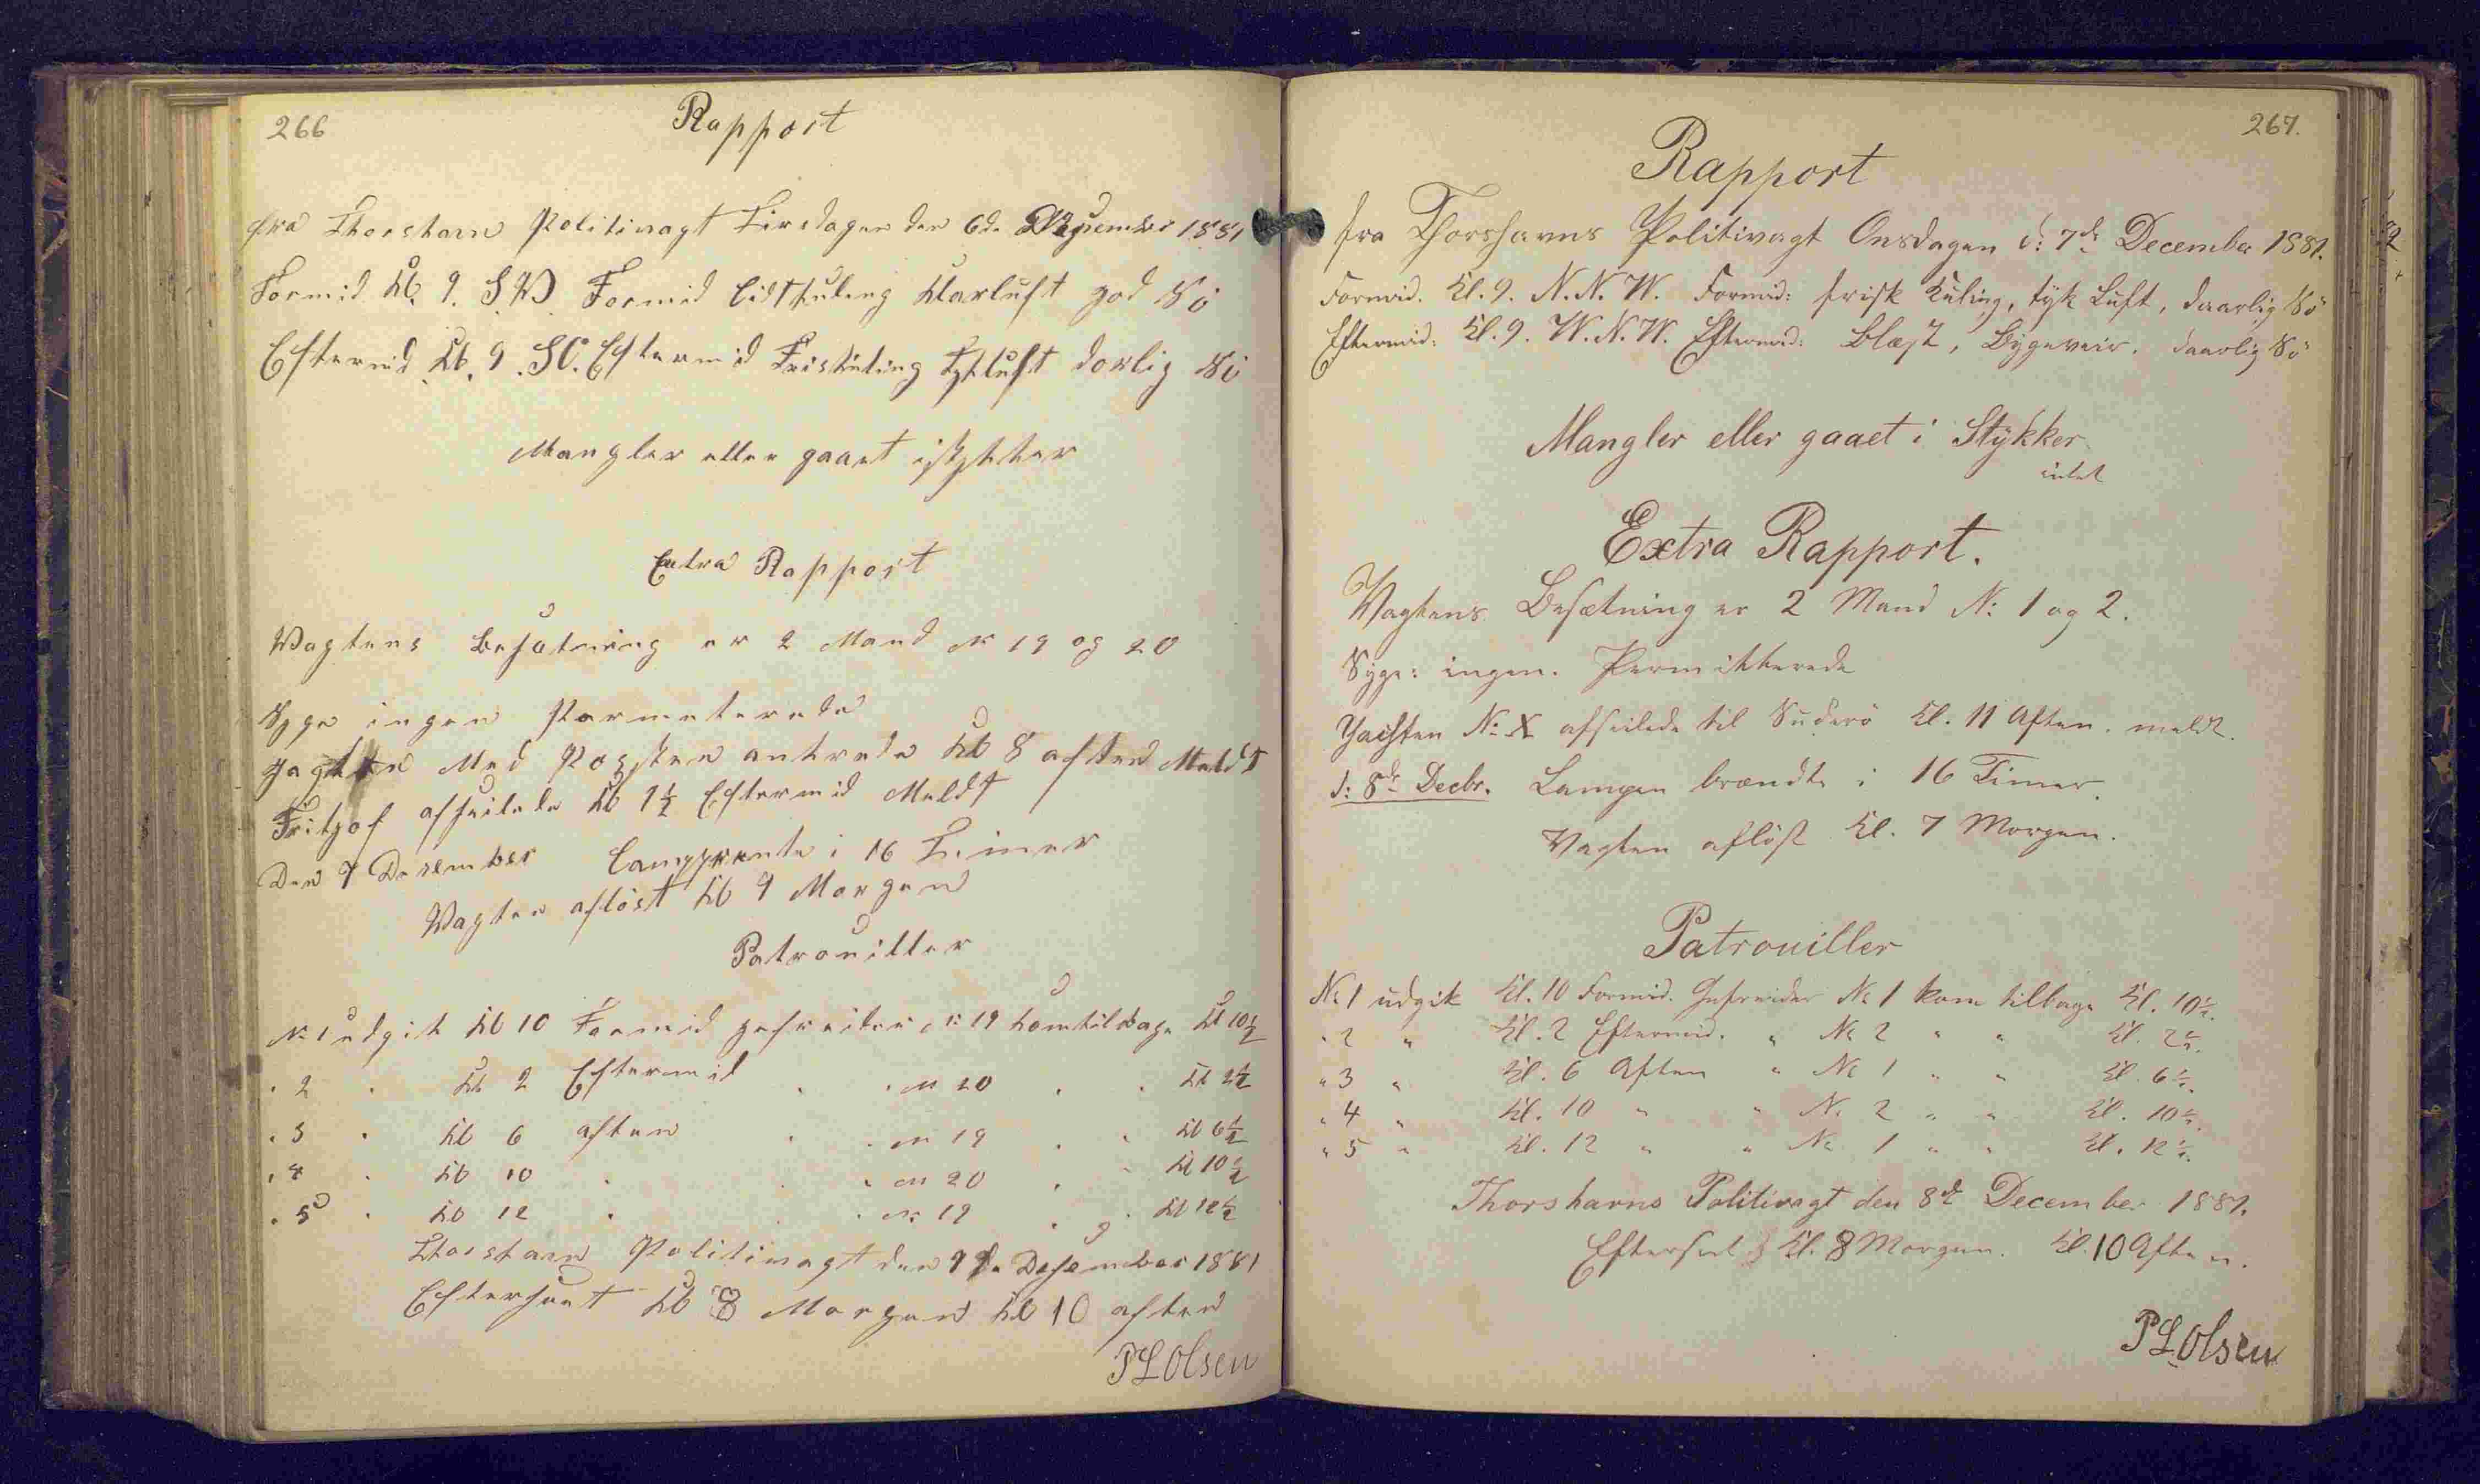 266
Rapport
fra Thorshavn Politivagt Tirsdagen den 6de December 1881
Formid Kl. 9. S.W. Formid lidt Kuling Klarluft god Sö
Eftermid Kl. 9. SO. Eftermid Friskuling Tykluft dorlig Sö
Mangler eller gaaet i stykker
Extra Rapport
Wagtens Besatning er 2 Mand No 19 og 20
Syge ingen Permeterede
Jagten Med Posten ankrede Kl 8 aften Meldt
Fritjof afseilede Kl 1½ Eftermid Meldt
Den 7 Desember i 16 Timer
Wagten aflöst Kl 9 Morgen
Patrouiller
No 1 udgik Kl 10 Formid gefreider No 19 kom tilbage Kl 10½
" 2 " Kl 2 Eftermid " " No 20 " " Kl 2½
" 3 " Kl 6 aften " " No 19 " " Kl 6½
" 4 " Kl 10 " " " No 20 " " Kl 10½
" 5 " Kl 12 " " " No 19 " " Kl 12½
Thorshavn Politivagt den 7de Desember 1881
Efterseet Kl 8 Morgen Kl 10 aften
PLOlsen
267.
Rapport
fra Thorshavns Politivagt Onsdagen d: 7de December 1881.
Formid. Kl. 9. N.N.W. Formid: frisk Kuling, tyk Luft, daarlig Sö
Eftermid: Kl. 9. W.N.W. Eftermid: Blæst, Bygeveir. daarlig Sö
Mangler eller gaaet i Stykker
intet
Extra Rapport.
Vagtens Besætning er 2 Mand No: 1 og 2.
Syge: ingen. Permitterede
Jachten No. X afseilede til Suderö Kl. 11 Aften. meldt.
d: 8de Decbr. Lampen brændte i 16 Timer.
Vagten aflöst Kl. 7 Morgen.
Patrouiller
No 1 udgik Kl. 10 Formid. Gefreider No 1 kom tilbage Kl. 10½.
" 2 " Kl. 2 Eftermid. " No 2 " " Kl. 2½.
" 3 " Kl. 6 Aften " No 1 " " Kl. 6½.
" 4 " Kl. 10 " " No 2 " " Kl. 10½.
" 5 " Kl. 12 " " No 1 " " Kl. 12½.
Thorshavns Politivagt den 8de December 1881.
Efterseet Kl. 8 Morgen. Kl. 10 Aften.
PLOlsen